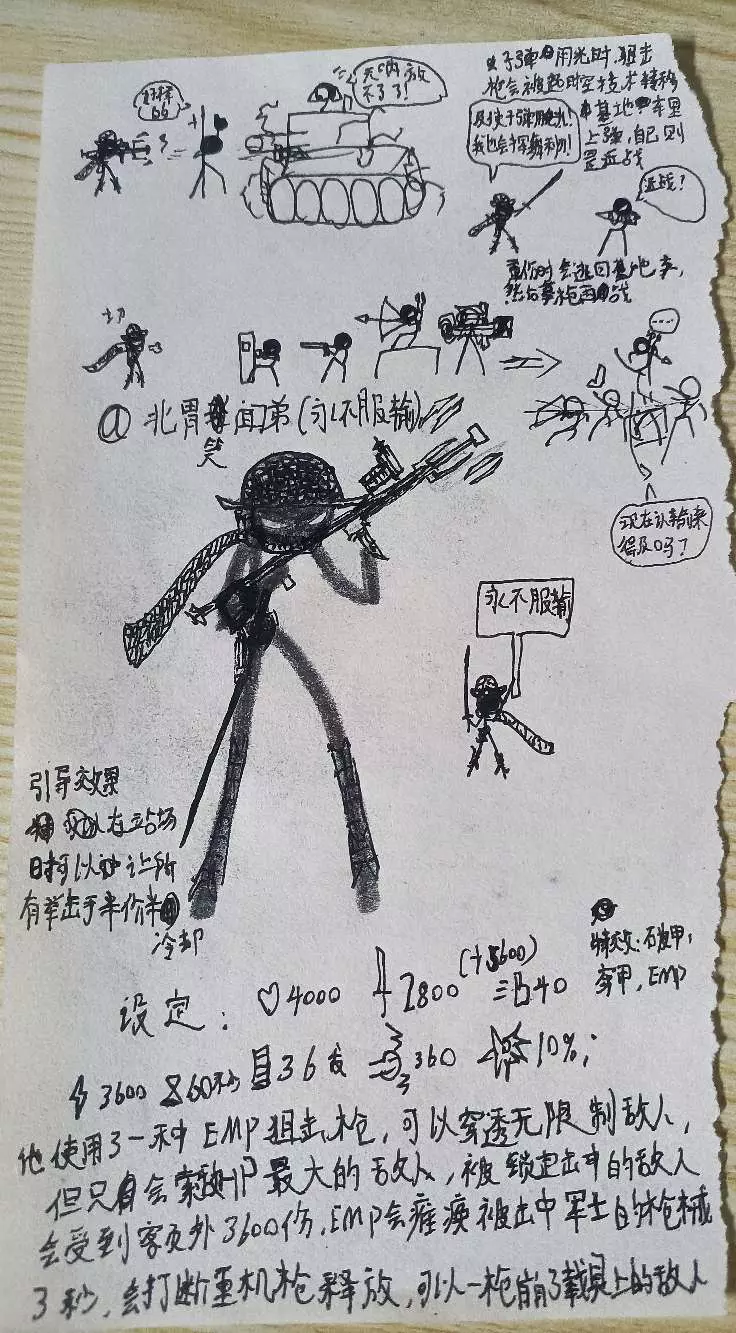 子弹用光时,狙击
他会被超时空技术转移
基地车里
上弹,自己则
是近战
及次子弹用光!
我也会
近战?
重伤时会逃回基地车,
然后拿枪再战
无内放
不了了!
@北冒笑闻弟(永不服输)
现在认输来
得及吗?
永不服输
引导效果
可以在立场
时可以让所
有举出手半价半
冷却
特效:破甲,
穿甲,EMP
设定:♡4000 2800(+3600) 40
3600 60秒 36发 360 10%;
他使用了一种EMP狙击枪,可以穿透无限制敌人,
但只会索敌HP最大的敌人,被锁定击中的敌人
会受到额外3600伤,EMP会瘫痪被击中军士的枪械
3秒,会打断重机枪释放,可以一枪崩了载具上的敌人